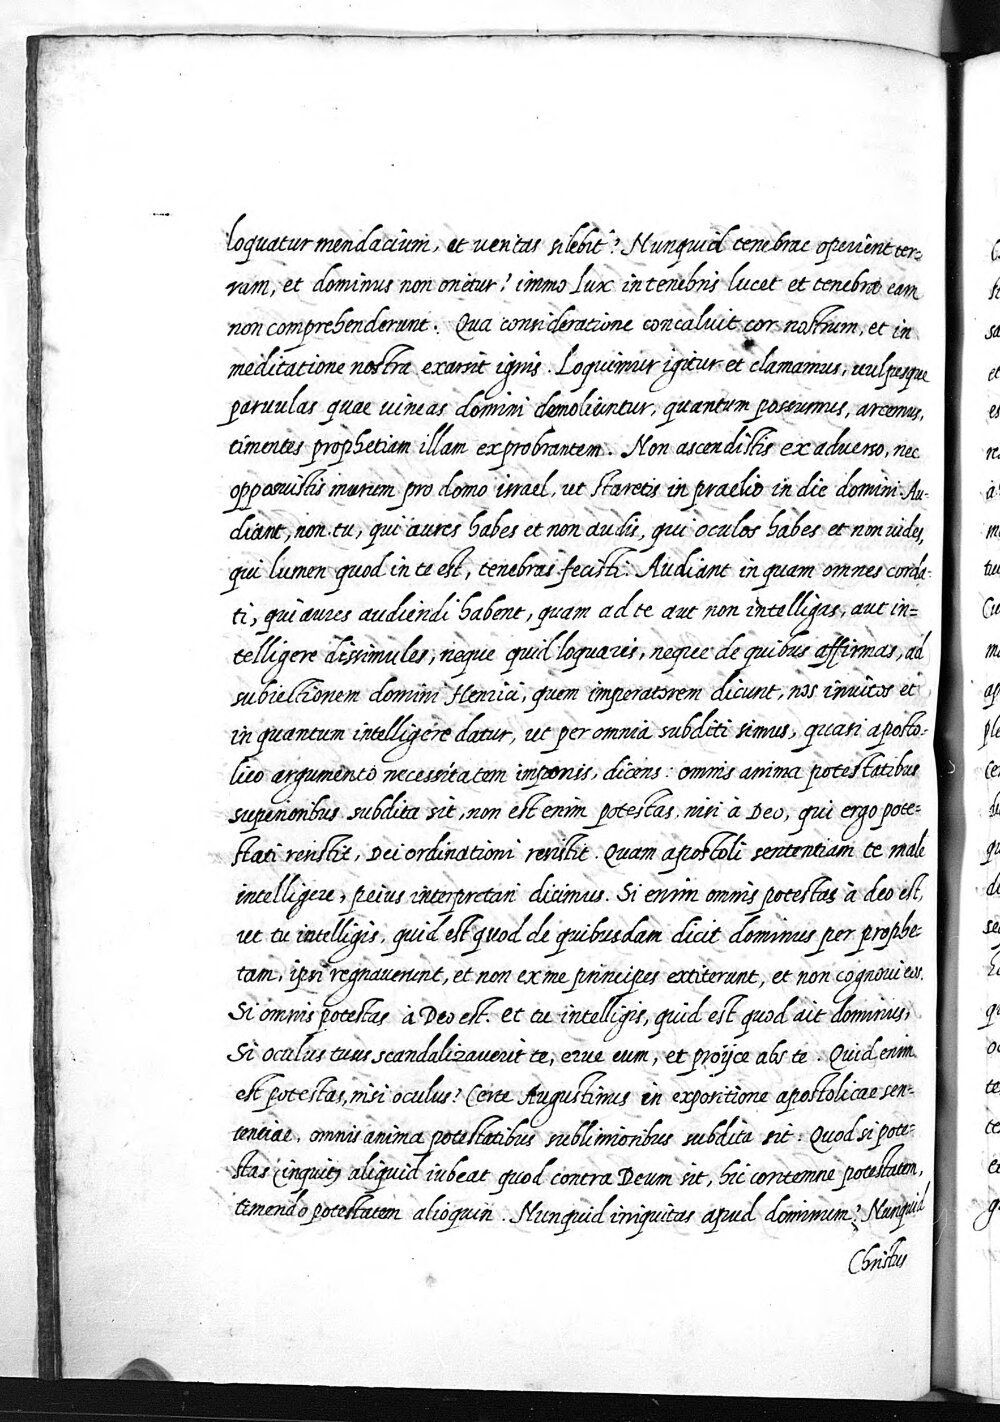 loquatur mendacium, et veritas silebit? Nunquid tenebrae operient ter=
ram, et dominus non orietur? immo Lux in tenebris lucet et tenebrae eam
non comprehenderunt. Qua consideratione concaluit cor nostrum, et in
meditatione nostra exarsit ignis. Loquimur igitur et clamamus, vulpesque
parvulas quae vineas domini demoliuntur, quantum possumus, arcemus,
timentes prophetiam illam exprobrantem. Non ascendistis ex adverso, nec
opposuistis murum pro domo israel, ut staretis in praelio in die domini. Au-
diant, non tu, qui aures habes et non audis, qui oculos habes et non vides,
qui lumen quod in te est, tenebras fecisti. Audiant inquam omnes corda-
ti, qui aures audiendi habent, quam ad te aut non intelligas, aut in=
telligere dissimules, neque quid loquaris, neque de quibus affirmas, ad
subiectionem domini Henrici, quem imperatorem dicunt, nos invitos et
in quantum intelligere datur, ut per omnia subditi simus, quasi aposto-
lico argumento necessitatem imponis, dicens: omnis anima potestatibus
superioribus subdita sit, non est enim potestas nisi à Deo, qui ergo pote=
stati resistit, Dei ordinationi resistit. Quam apostoli sententiam te male
intelligere, peius interpretari dicimus. Si enim omnis potestas à deo est,
ut tu intelligis, quid est quod de quibusdam dicit dominus per prophe-
tam, ipsi regnaverunt, et non ex me principes extiterunt, et non cognovi eos.
Si omnis potestas à Deo est. et tu intelligis, quid est quod ait dominus,
Si oculus tuus scandalizaverit te, erue eum, et proijce abs te. Quid enim
est potestas, nisi oculus? Certe Augustinus in expositione apostolicae sen-
tenciae, omnis anima potestatibus sublimioribus subdita sit: Quod si pote-
stas (inquit) aliquid iubeat quod contra Deum sit, hic contemne potestatem,
timendo potestatem alioquin. Nunquid iniquitas apud dominum? Nunquid
Christus